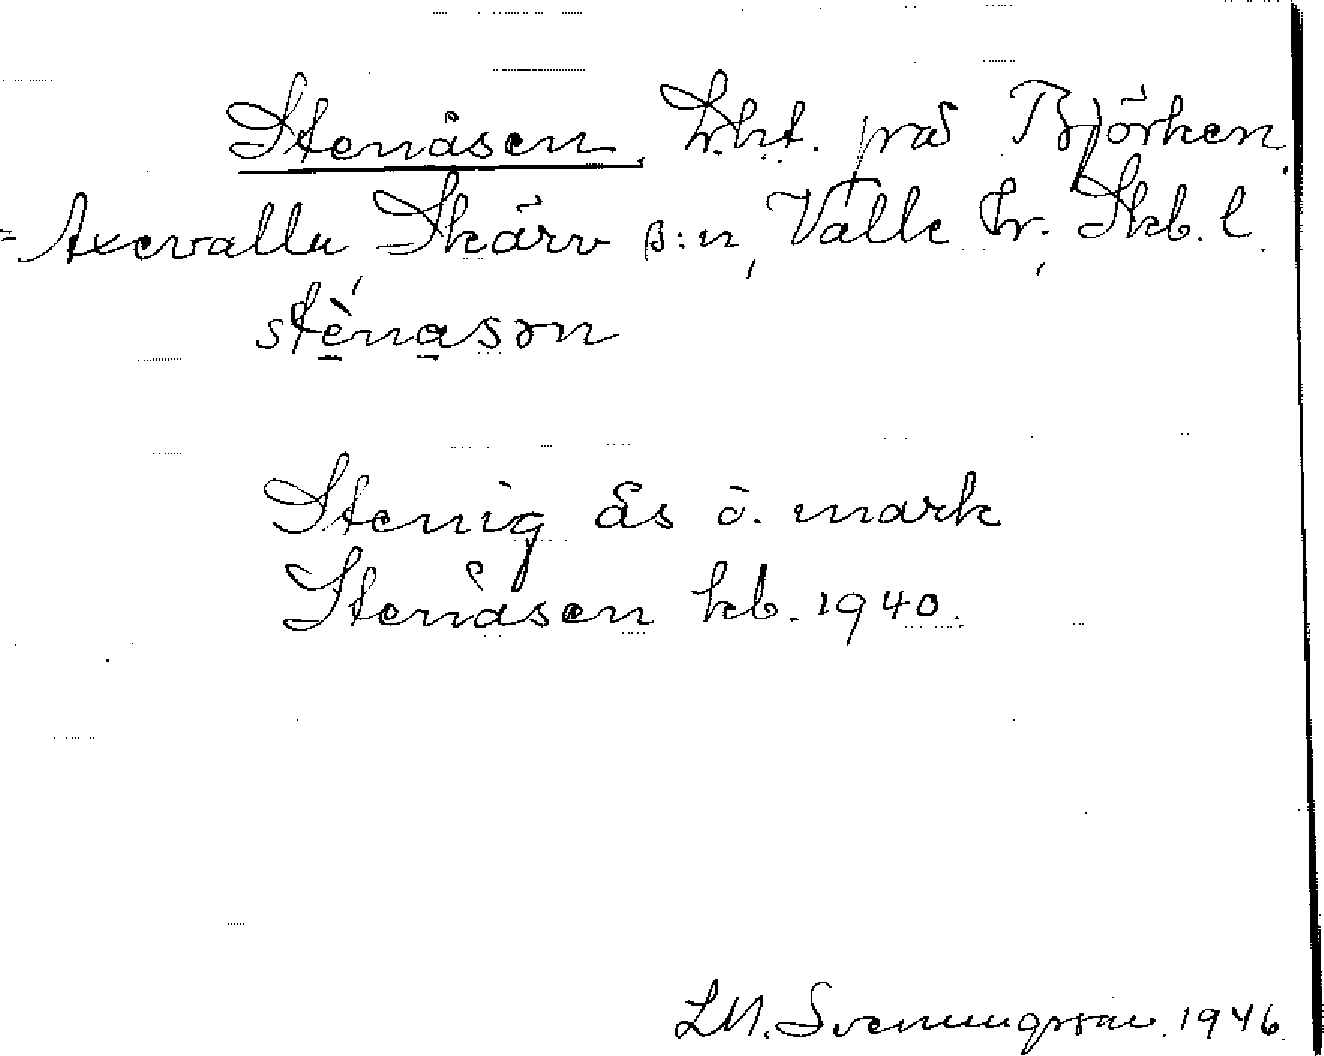 Stenåsen, Lht. på Björken,
Axevalla Skärv s:n, Valle hr, Skb. l.
stènasən
Stenig ås o. mark
Stenåsen kb. 1940.
LM. Svenungsson 1946